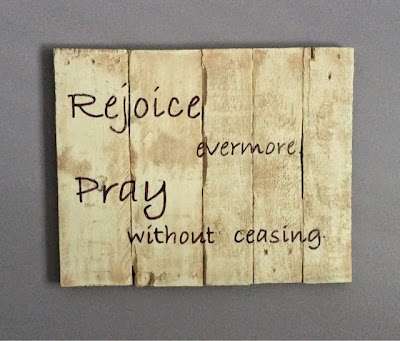 Rejoice
evermore.
Pray
without ceasing.